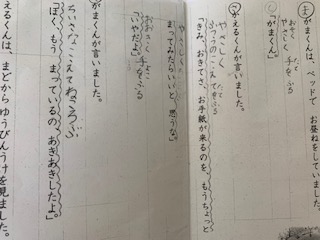 がまくんは、ベッドで お昼ねをしていました。
おそく
やさしく 手をふる
たて
「がまくん。」
かえるくんが言いました。
やさしく たて
ふつうのこえで 手をふる
「きみ、おきてさ、お手紙が来るのを、もうちょっと
やさしく
まってみたらいいと 思うな。」
よこ
おおきく 手をふる
「いやだよ。」
がまくんが言いました。
ちいさなこえで ねころぶ
「ぼく、もう まっているの、あきあきしたよ。」
かえるくんは、まどから ゆうびんうけを見ました。